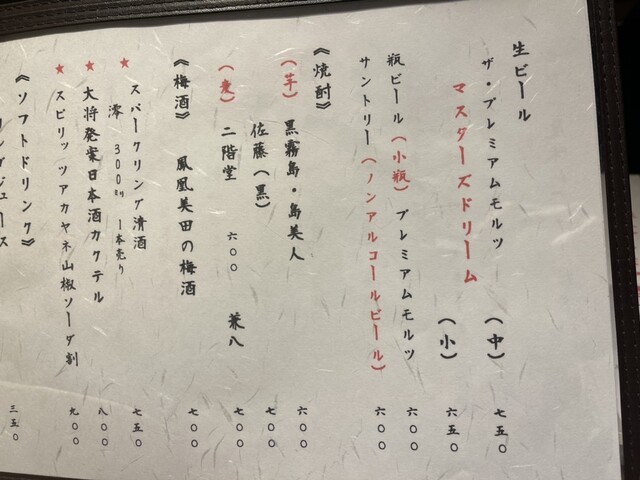 生ビール
ザ・プレミアムモルツ （中） 七五〇
マスターズドリーム （小） 六五〇
瓶ビール（小瓶） プレミアムモルツ 六〇〇
サントリー（ノンアルコールビール） 六〇〇
《焼酎》
（芋） 黒霧島・島美人 六〇〇
佐藤（黒） 七〇〇
（麦） 二階堂 六〇〇 兼八 七〇〇
《梅酒》 鳳凰美田の梅酒 七〇〇
★ スパークリング清酒
澪 300㍉ 1本売り 七五〇
★ 大将発案日本酒カクテル 八〇〇
★ スピリッツアカヤネ山椒ソーダ割 九〇〇
《ソフトドリンク》
三五〇